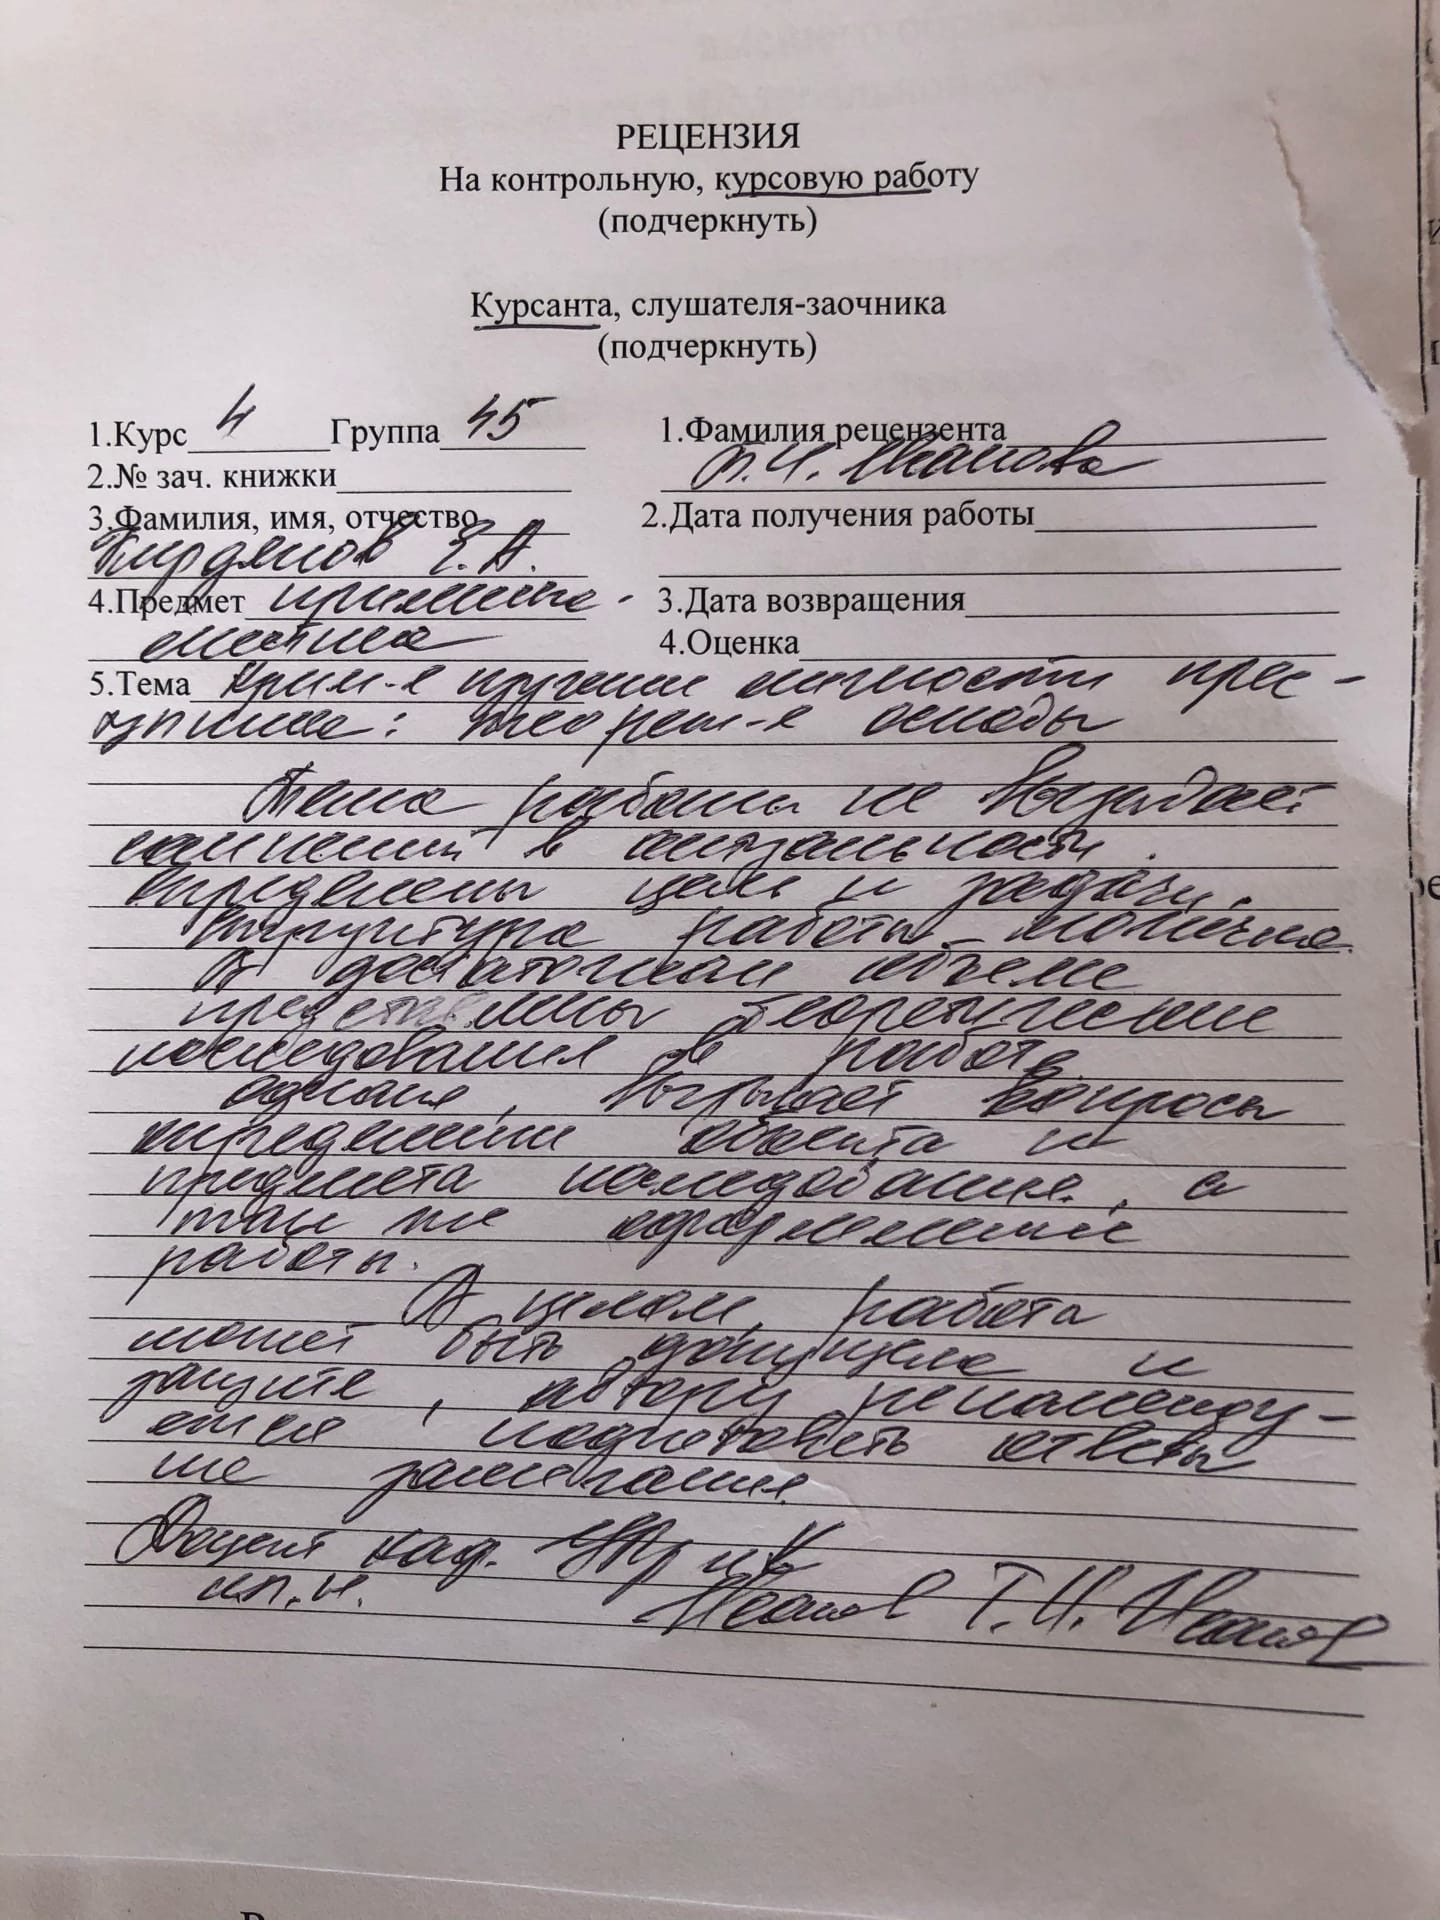 РЕЦЕНЗИЯ
На контрольную, курсовую работу
(подчеркнуть)
Курсанта, слушателя-заочника
(подчеркнуть)
1.Курс 4 Группа 45
2.№ зач. книжки
3.Фамилия, имя, отчество
4.Предмет кримина-
листика
5.Тема Крим-е изучение личности прес-
тупника: теорет-е основы
1.Фамилия рецензента
Т.И. Иванова
2.Дата получения работы
3.Дата возвращения
4.Оценка
Тема работы не вызывает
сомнений в актуальности.
Определены цель и задачи.
Структура работы логична.
В достаточном объеме
представлены теоретические
исследования в работе.
Однако, вызывает вопросы
определение объекта и
предмета исследования, а
так же оформление
работы.
В целом, работа
может быть допущена к
защите, автору рекоменду-
ется подготовить ответы
на замечания.
Доцент каф.
Т.И. Иванова